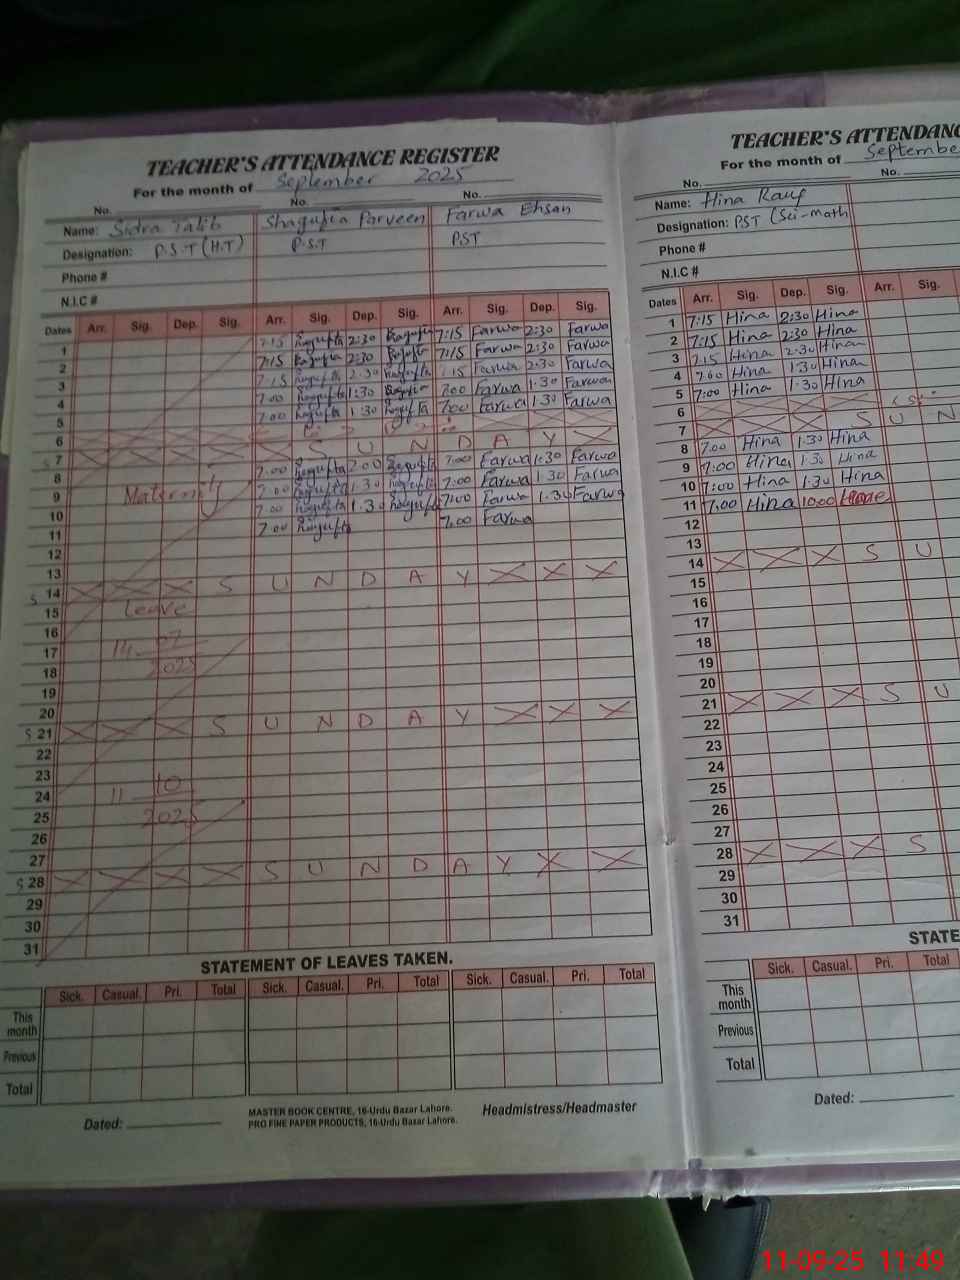 TEACHER'S ATTENDANCE REGISTER
For the month of September 2025
No. No. No.
Name: Sidra Talib Shagufta Parveen Farwa Ehsan
Designation: P.S.T (H.T) P.S.T PST
Phone #
N.I.C #
Dates Arr. Sig. Dep. Sig. Arr. Sig. Dep. Sig. Arr. Sig. Dep. Sig.
1 7:15 Shagufta 2:30 Shagufta 7:15 Farwa 2:30 Farwa
2 7:15 Shagufta 2:30 Shagufta 7:15 Farwa 2:30 Farwa
3 7:15 Shagufta 2:30 Shagufta 7:15 Farwa 2:30 Farwa
4 7:00 Shagufta 1:30 Shagufta 7:00 Farwa 1:30 Farwa
5 7:00 Shagufta 1:30 Shagufta 7:00 Farwa 1:30 Farwa
6
S 7 S U N D A Y
8 7:00 Shagufta 2:00 Shagufta 7:00 Farwa 1:30 Farwa
9 Maternity 7:00 Shagufta 1:30 Shagufta 7:00 Farwa 1:30 Farwa
10 7:00 Shagufta 1:30 Shagufta 7:00 Farwa 1:30 Farwa
11 7:00 Shagufta 7:00 Farwa
12
13
S 14 S U N D A Y
15 Leave
16
17 14 07
18 2025
19
20
S 21 S U N D A Y
22
23
24 11 10
25 2025
26
27
S 28 S U N D A Y
29
30
31
STATEMENT OF LEAVES TAKEN.
Sick. Casual. Pri. Total Sick. Casual. Pri. Total Sick. Casual. Pri. Total
This month
Previous
Total
Dated:
MASTER BOOK CENTRE, 16-Urdu Bazar Lahore.
PRO FINE PAPER PRODUCTS, 16-Urdu Bazar Lahore.
Headmistress/Headmaster
TEACHER'S ATTENDANC
For the month of Septembe
No. No.
Name: Hina Rauf
Designation: PST (Sci-math
Phone #
N.I.C #
Dates Arr. Sig. Dep. Sig. Arr. Sig.
1 7:15 Hina 2:30 Hina
2 7:15 Hina 2:30 Hina
3 7:15 Hina 2:30 Hina
4 7:00 Hina 1:30 Hina
5 7:00 Hina 1:30 Hina
6
7 S U N
8 7:00 Hina 1:30 Hina
9 7:00 Hina 1:30 Hina
10 7:00 Hina 1:30 Hina
11 7:00 Hina 10:00
12
13
14 S U
15
16
17
18
19
20
21 S U
22
23
24
25
26
27
28 S
29
30
31
STATE
Sick. Casual. Pri. Total
This month
Previous
Total
Dated:
11-09-25 11:49